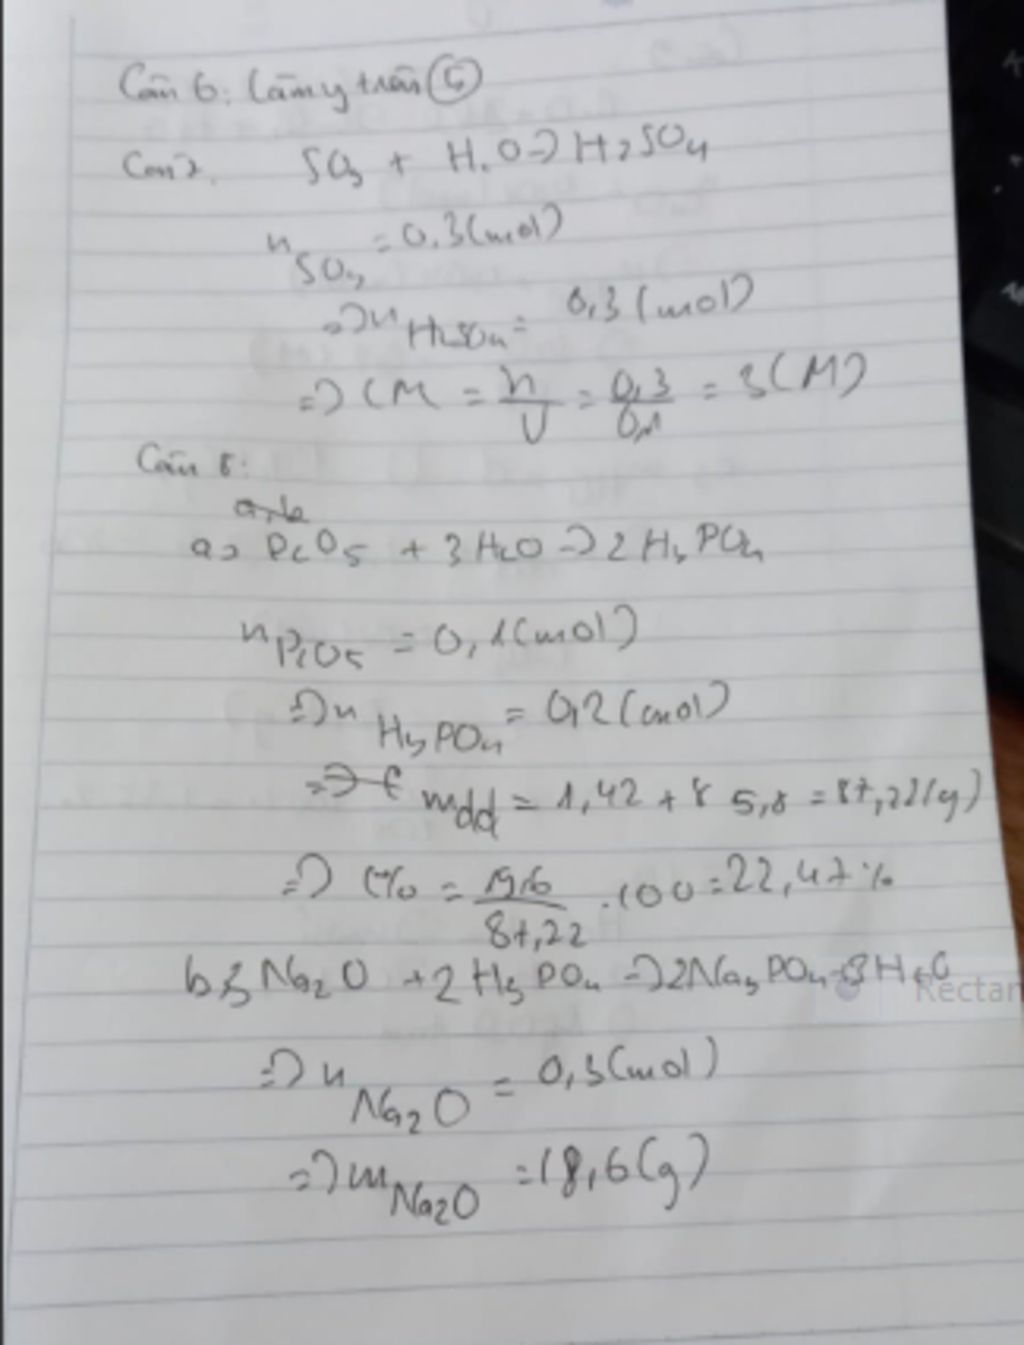 Câu 6: Làm y trên (5)
Câu 7. SO3 + H2O => H2SO4
nSO3 = 0,3 (mol)
=> nH2SO4 = 0,3 (mol)
=> CM = n/V = 0,3/0,1 = 3(M)
Câu 8:
a, b
a) P2O5 + 3H2O => 2H3PO4
nP2O5 = 0,1(mol)
=> nH3PO4 = 0,2 (mol)
=> mdd = 1,42 + 85,8 = 87,22(g)
=> C% = 19,6/87,22 .100 = 22,47%
b, 3Na2O + 2H3PO4 => 2Na3PO4 + 3H2O
Rectan
=> nNa2O = 0,3(mol)
=> mNa2O = 18,6(g)